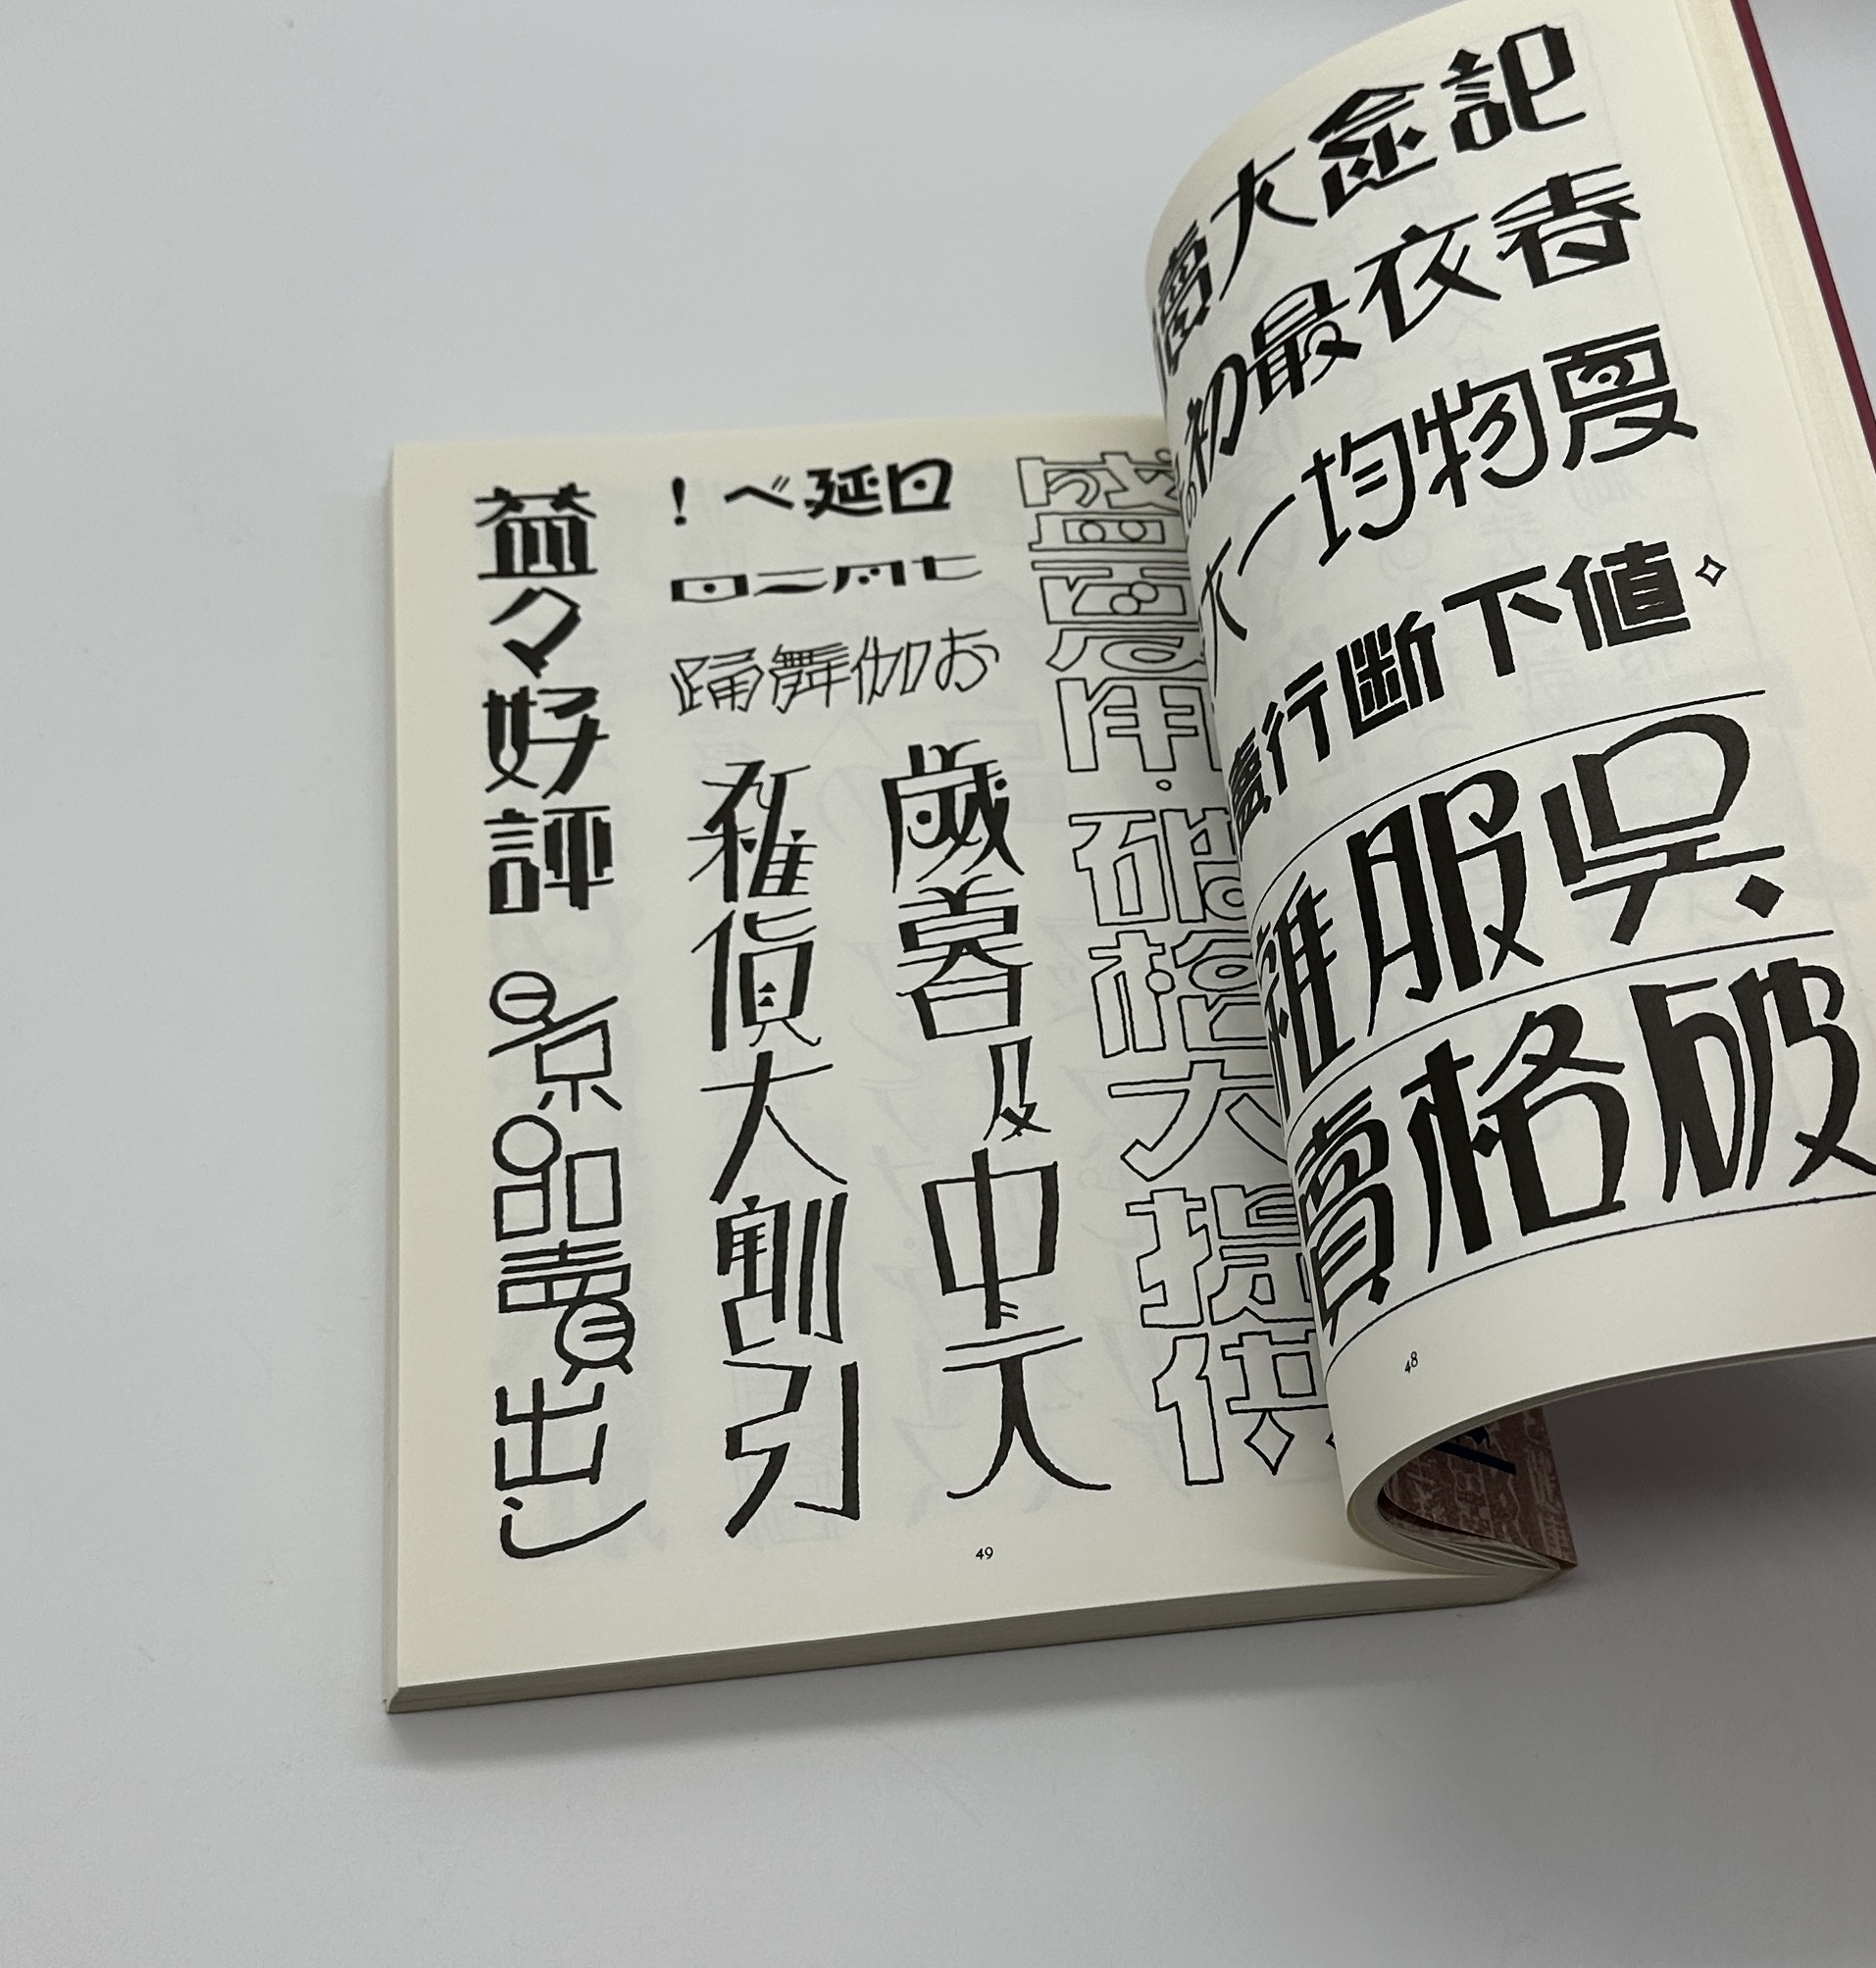 記念大賣
春衣最初の
夏物均一大
値下斷行賣
呉服雜
破格賣
48
盛夏用・破格大提供
日延べ!
七月二日
お伽舞踊
歲暮及中元
雜貨大割引
益々好評 景品賣出し
49